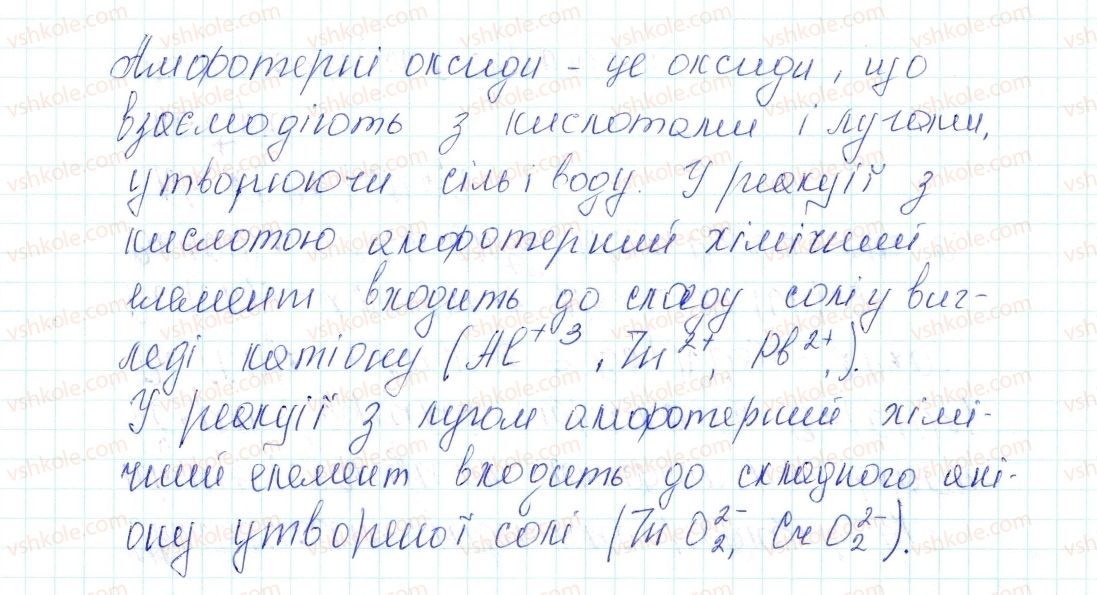 Амфотерні оксиди - це оксиди, що
взаємодіють з кислотами і лугами,
утворюючи сіль і воду. У реакції з
кислотою амфотерний хімічний
елемент входить до складу солі у виг-
леді катіону (Al⁺³, Zn²⁺, Pb²⁺,).
У реакції з лугом амфотерний хімі-
чний елемент входить до складного ані-
ону утвореної солі (ZnO₂²⁻, CrO₂²⁻).